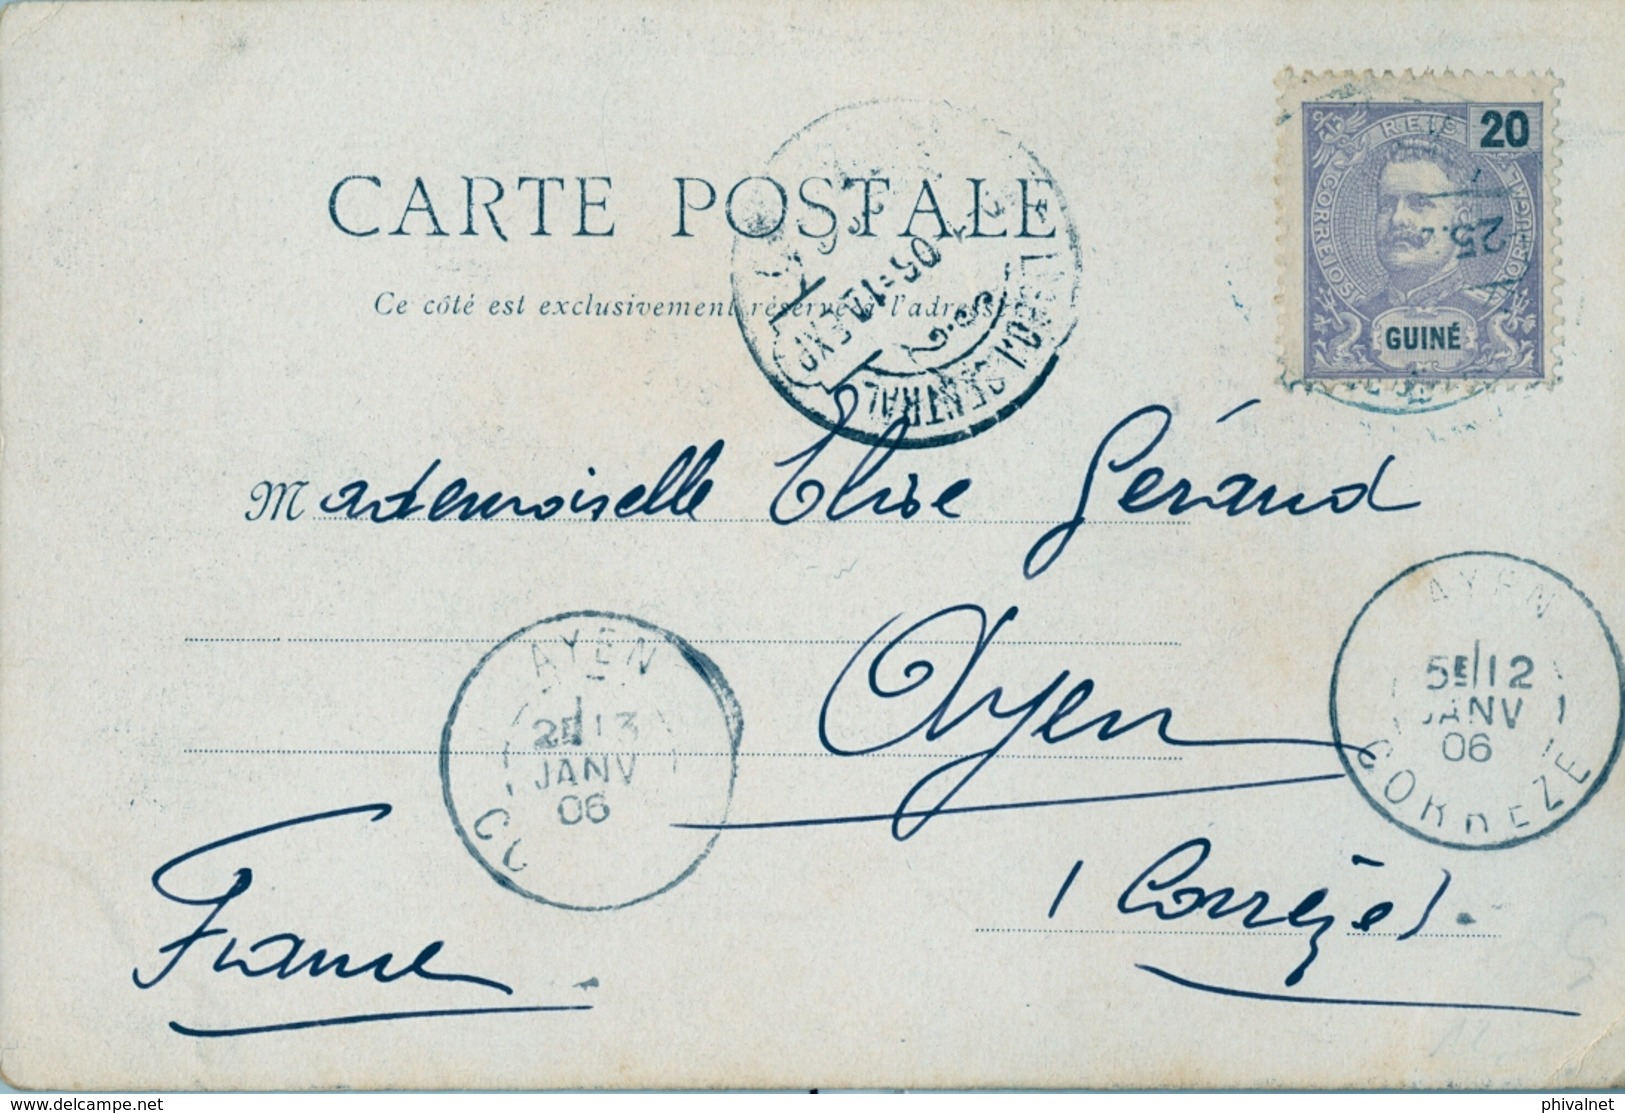 REIS 20
CORREIOS
PORTUGAL
GUINÉ
25.
CARTE POSTALE
Ce côté est exclusivement réservé à l'adresse
LISBOA CENTRAL
Mademoiselle Elise Géraud
Ayen
(Corrèze).
France
AYEN
2E 13
JANV
06
CO
AYEN
5E 12
JANV
06
CORREZE
delcampe.net
phivalnet